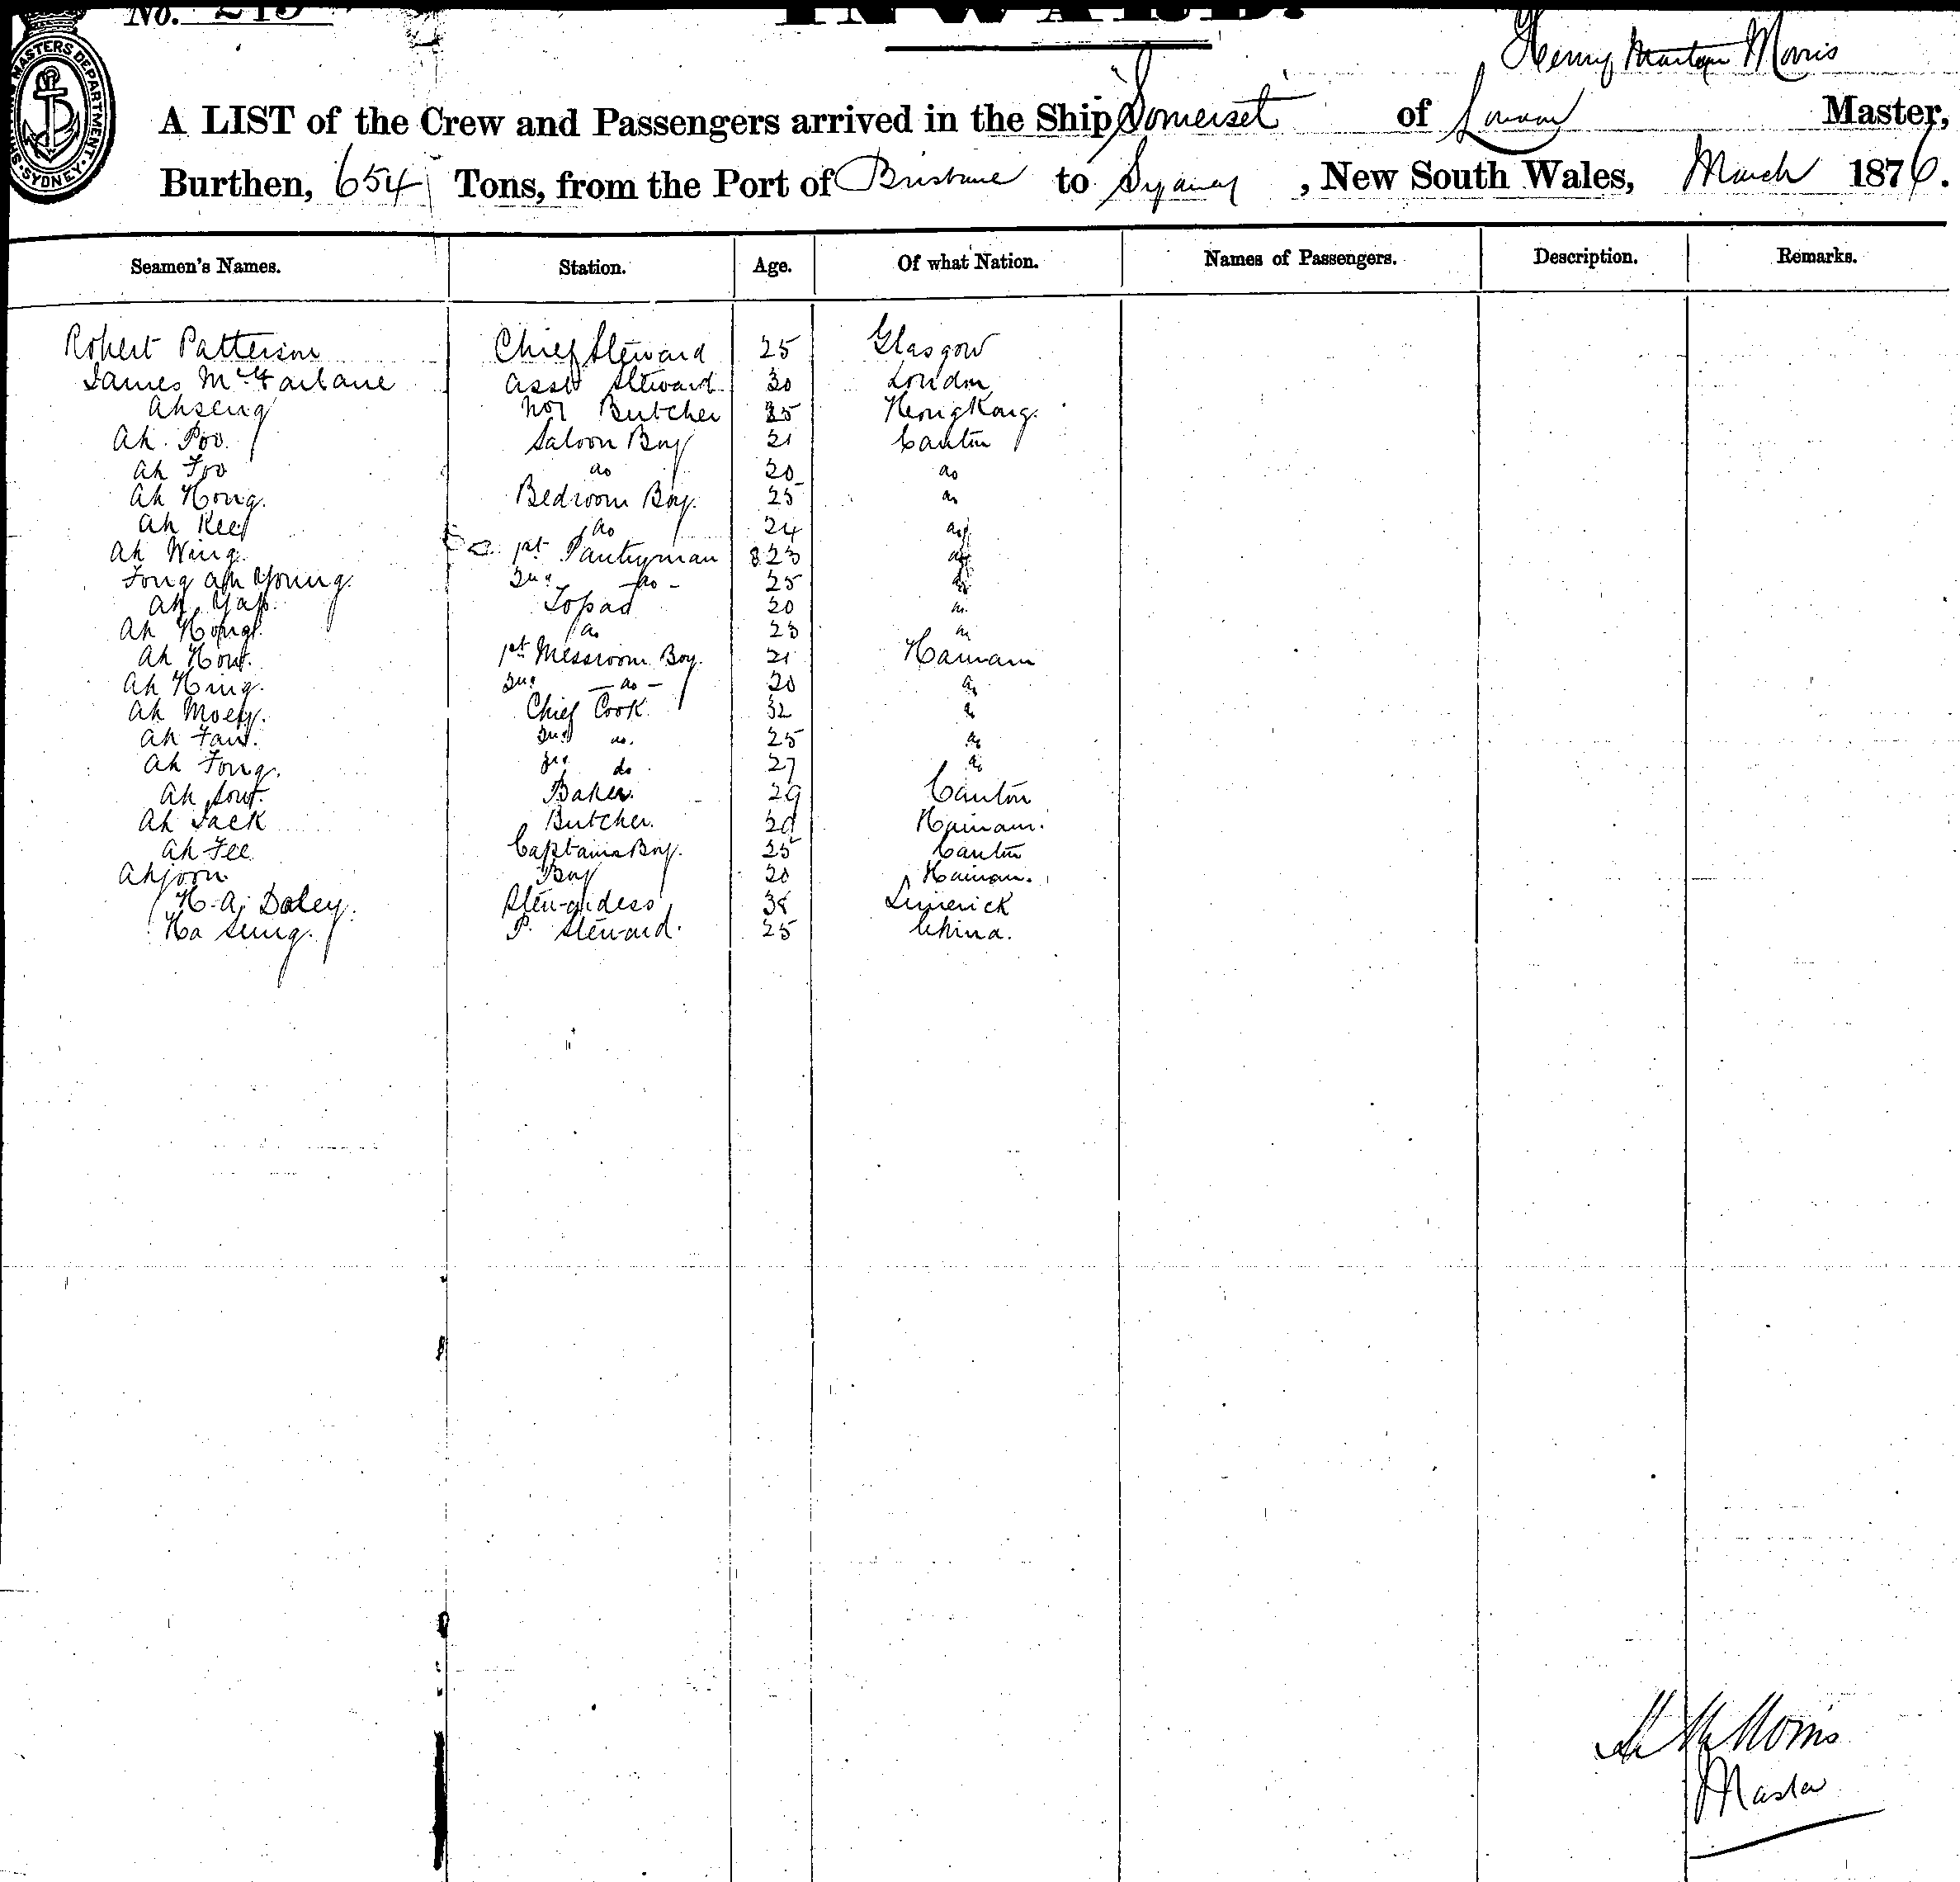 No. 215
INWARD.
SHIPPING MASTERS DEPARTMENT. SYDNEY.
Henry Morris
A LIST of the Crew and Passengers arrived in the Ship Somerset of London Master,
Burthen, 654 Tons, from the Port of Brisbane to Sydney, New South Wales, March 1876.
Seamen's Names. Station. Age. Of what Nation. Names of Passengers. Description. Remarks.
Robert Patterson Chief Steward 25 Glasgow
James McFarlane Asst Steward 30 London
Ahseng No 1 Butcher 35 HongKong.
Ah Poo. Saloon Boy 21 Canton
Ah Foo do 20 do
Ah Hong. Bedroom Boy. 25 do
Ah Kee do 24 do
Ah Wing. 1st Pantryman 23 do
Fong Ah Young. 2nd -do- 25 do
Ah Yap. Topas 20 do
Ah Hong. do 23 do
Ah How. 1st Messroom Boy. 21 Hainam
Ah Hing. 2nd -do- 20 do
Ah Moey. Chief Cook 32 do
Ah Fan. 2nd do. 25 do
Ah Fong. 3rd do 27 do
Ah Sow. Baker. 29 Canton
Ah Jack Butcher. 29 Hainam.
Ah Fee Captains Boy. 25 Canton
Ahjoon Boy 20 Hainam.
H. A. Daley. Stewardess 38 Limerick
Ha Sung. P. Steward. 25 China.
H M Morris
Master